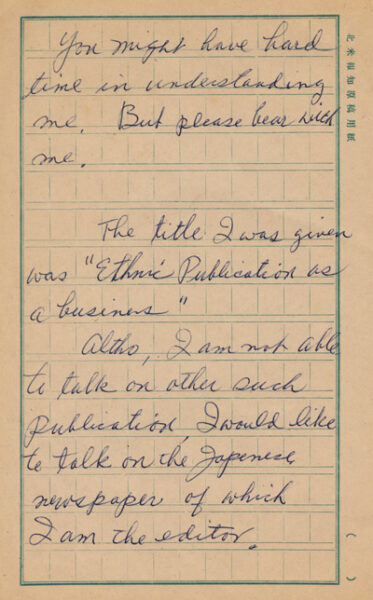 You might have hard
time in understanding
me. But please bear with
me.
The title I was given
was "Ethnic Publication as
a business"
Altho, I am not able
to talk on other such
publication, I would like
to talk on the Japenese
newspaper of which
I am the editor.
北米報知原稿用紙
(        )